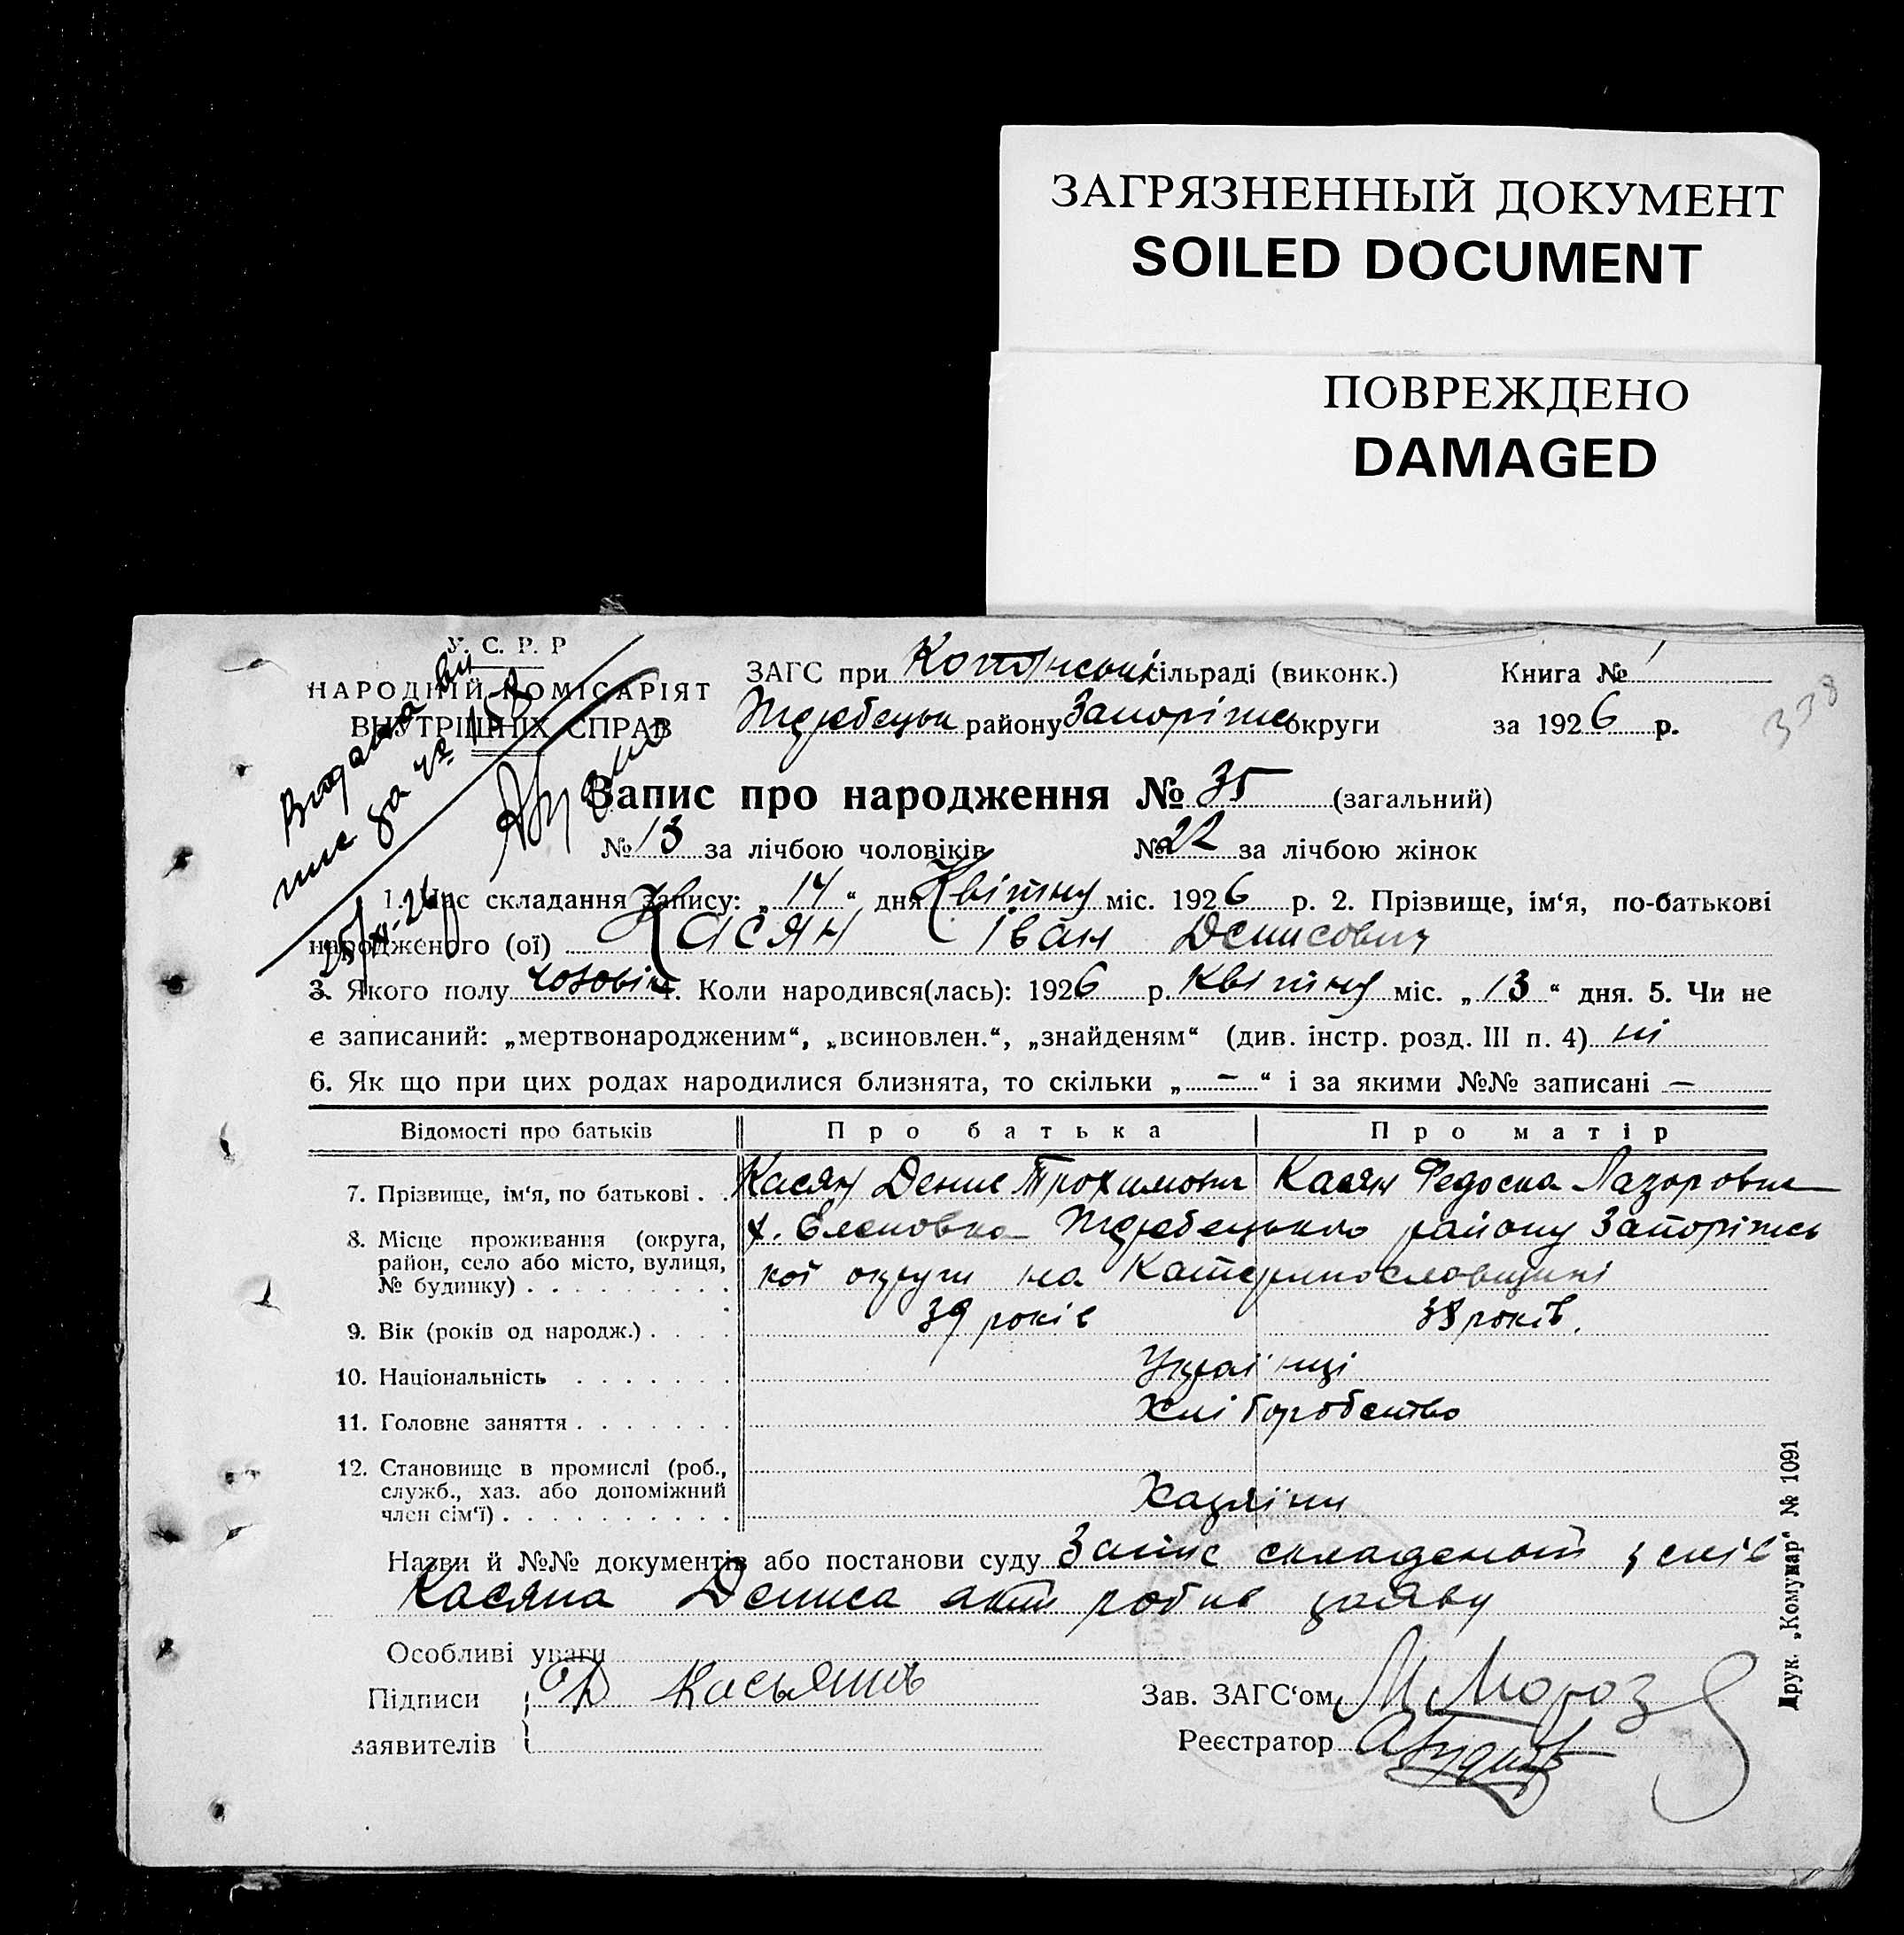 ЗАГРЯЗНЕННЫЙ ДОКУМЕНТ
SOILED DOCUMENT
ПОВРЕЖДЕНО
DAMAGED
У. С. Р. Р
НАРОДНІЙ КОМІСАРІЯТ
ВНУТРІШНІХ СПРАВ
ЗАГС при сільраді (виконк.) Книга № 1
району Запоріжс округи за 1926 р.
338
Запис про народження № 35 (загальний)
№ 13 за лічбою чоловіків № 22 за лічбою жінок
1. Час складання запису: „ 14 “ дня Квітну міс. 1926 р. 2. Прізвище, ім‘я, по-батькові
народженого (ої) Касян Іван Денисович
3. Якого полу чоловік 4. Коли народився(лась): 1926 р. Квітну міс. „ 13 “ дня. 5. Чи не
є записаний: „мертвонародженим“, „всиновлен.“, „знайденям“ (див. інстр. розд. III п. 4) ні
6. Як що при цих родах народилися близнята, то скільки „ — “ і за якими №№ записані —
Відомості про батьків Про батька Про матір
7. Прізвище, ім‘я, по батькові . . Касян Денис Трохимович Касян Федоска Лазоровна
8. Місце проживання (округа, район, село або місто, вулиця, № будинку) . . . . . . . . . х. Еленовка району Запоріжсь
кої округи на Катеринославщині
9. Вік (років од народж.) . . . . 39 років 38 років.
10. Національність . . . . . . . Українці
11. Головне заняття . . . . . . . Хліборобство
12. Становище в промислі (роб., служб., хаз. або допоміжний член сім‘ї) . . . . . . . . . . Хазяїни
Назви й №№ документів або постанови суду Запис складеной з слів
Касяна Дениса акт робив заяву
Особливі уваги
Підписи Д Касьянов Зав. ЗАГС‘ом М Мороз
заявителів Реєстратор
Друк. „Комунар“ № 1091